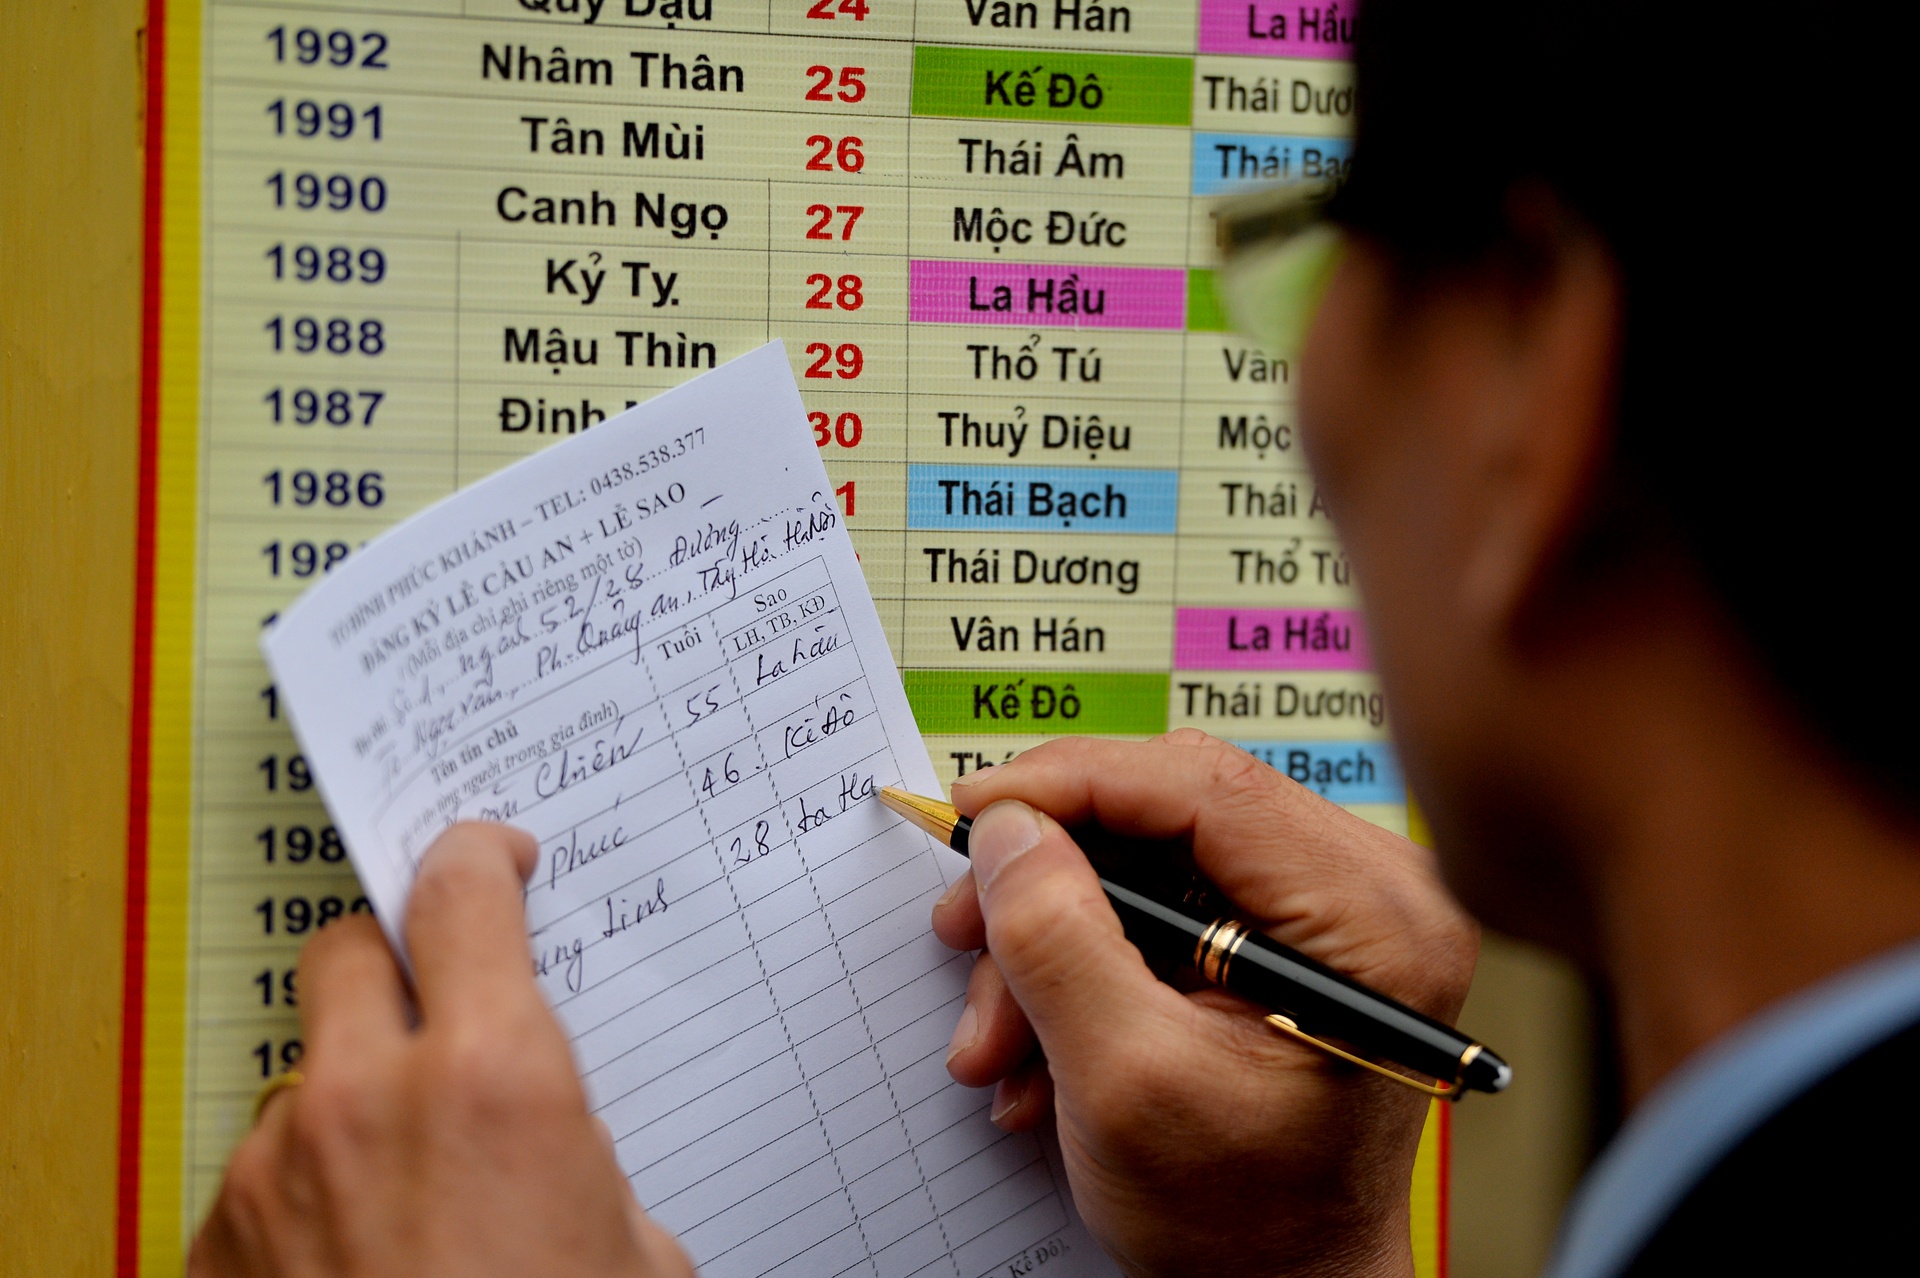 Quý Dậu 24 Vân Hán La Hầu
1992 Nhâm Thân 25 Kế Đô Thái Dươ
1991 Tân Mùi 26 Thái Âm Thái Bạc
1990 Canh Ngọ 27 Mộc Đức
1989 Kỷ Tỵ 28 La Hầu
1988 Mậu Thìn 29 Thổ Tú Vân
1987 Đinh 30 Thuỷ Diệu Mộc
1986 1 Thái Bạch Thái
198 Thái Dương Thổ Tú
Vân Hán La Hầu
1 Kế Đô Thái Dương
19 Bạch
198
1980
19
19
TỔ ĐÌNH PHÚC KHÁNH – TEL: 0438.538.377
ĐĂNG KÝ LỄ CẦU AN + LỄ SAO
(Mỗi địa chỉ ghi riêng một tờ)
ngách 52/28 Đường
Ph. Quảng an, Tây Hồ Hà Nội
Tên tín chủ Tuổi Sao
người trong gia đình) LH, TB, KĐ
Chiến 55 La hầu
phúc 46 Kế Đô
ung Linh 28 La Hầ
Kế Đô).